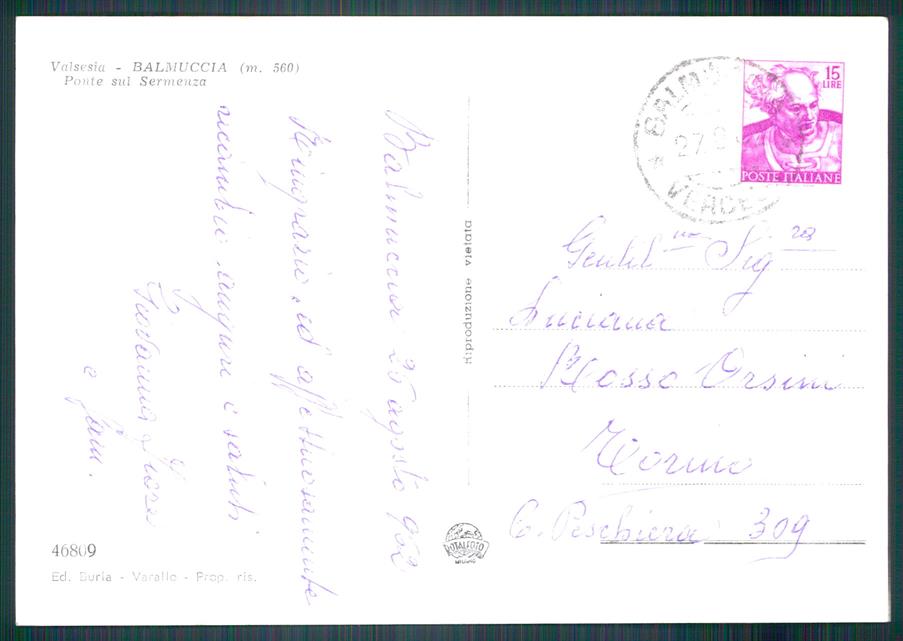 Valsesia - BALMUCCIA (m. 560)
Ponte sul Sermenza
Balmuccia 25 agosto 962
Ringrazio ed affettuosamente
ricambio auguri e saluti
e fam.
46809
Ed. Buria - Varallo - Prop. ris.
Riproduzione vietata
BALM
27.8
VERCE
15
LIRE
POSTE ITALIANE
Gentil ma Sig ra
Luciana
Rosso Orsini
Torino
C. Peschiera 309
TOTALFOTO
MILANO